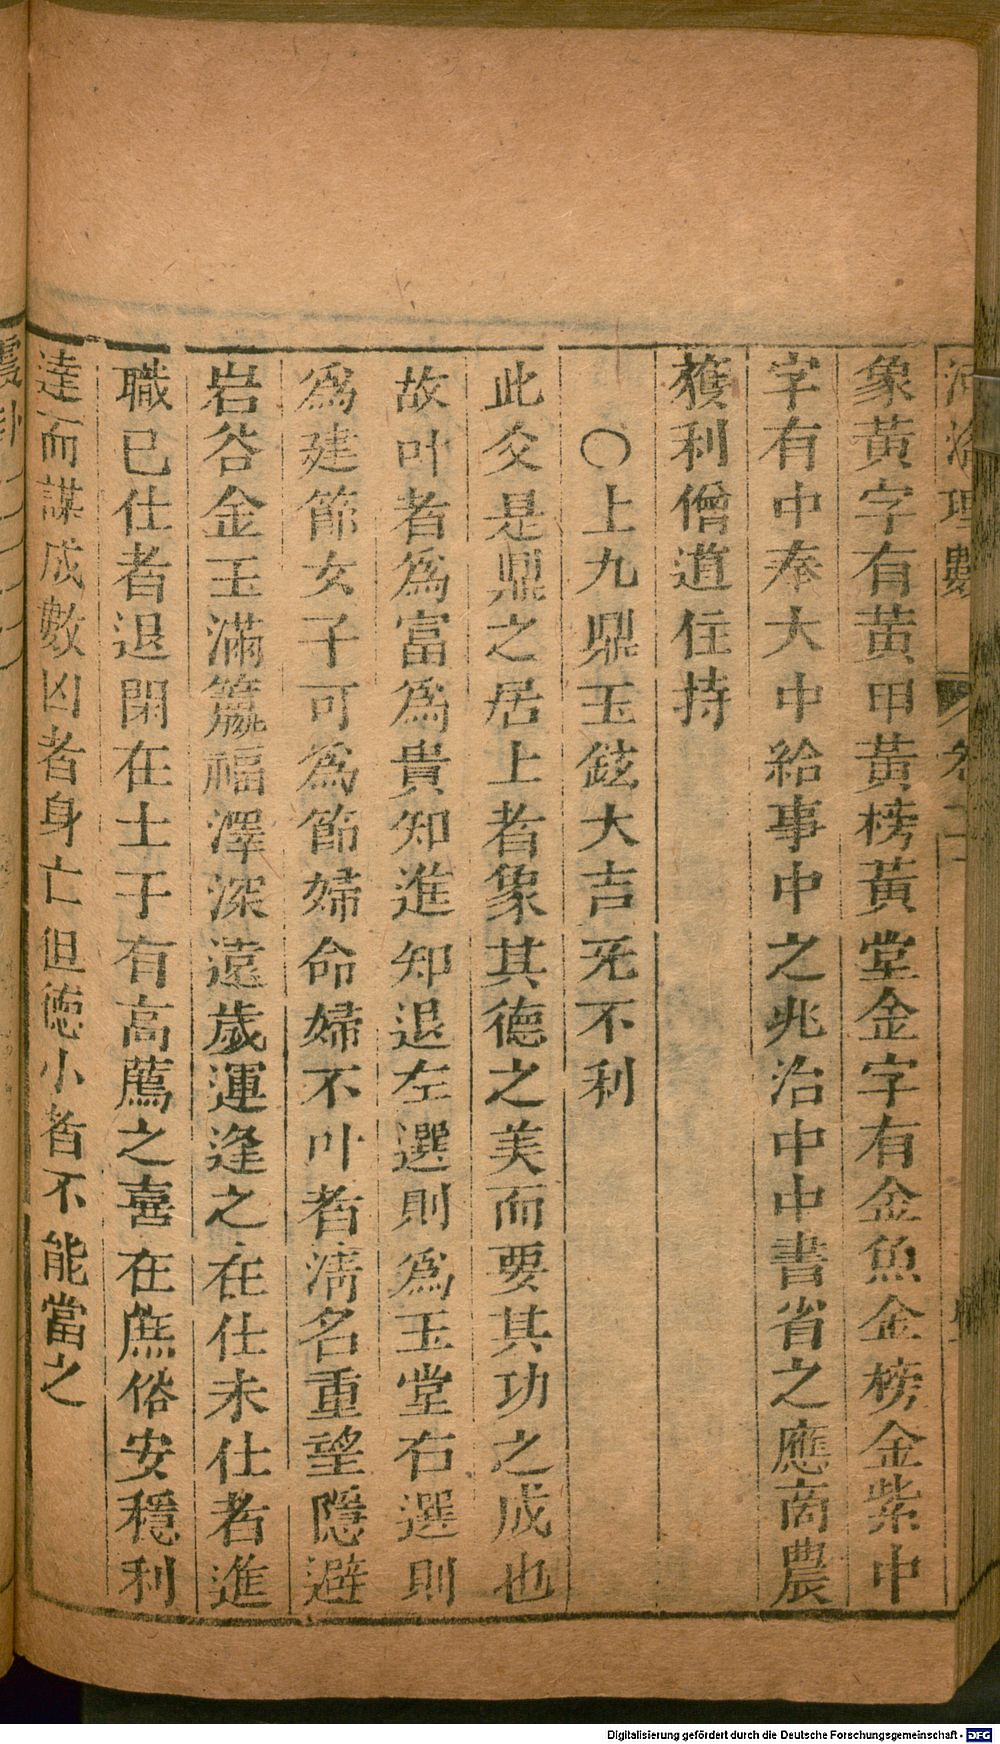 河洛理數 卷二
象黃字有黃甲黃榜黃堂金字有金魚金榜金紫中
字有中奉大中給事中之兆治中中書省之應商農
獲利僧道住持
○上九鼎玉鉉大吉旡不利
此爻是鼎之居上者象其德之美而要其功之成也
故叶者為富為貴知進知退左選則為玉堂右選則
為建節女子可為節婦命婦不叶者清名重望隱避
岩谷金玉滿籯福澤深遠歲運逢之在仕未仕者進
職已仕者退閑在士子有高薦之喜在庶俗安穩利
達而謀成數凶者身亡但德小者不能當之
震卦
Digitalisierung gefördert durch die Deutsche Forschungsgemeinschaft - DFG